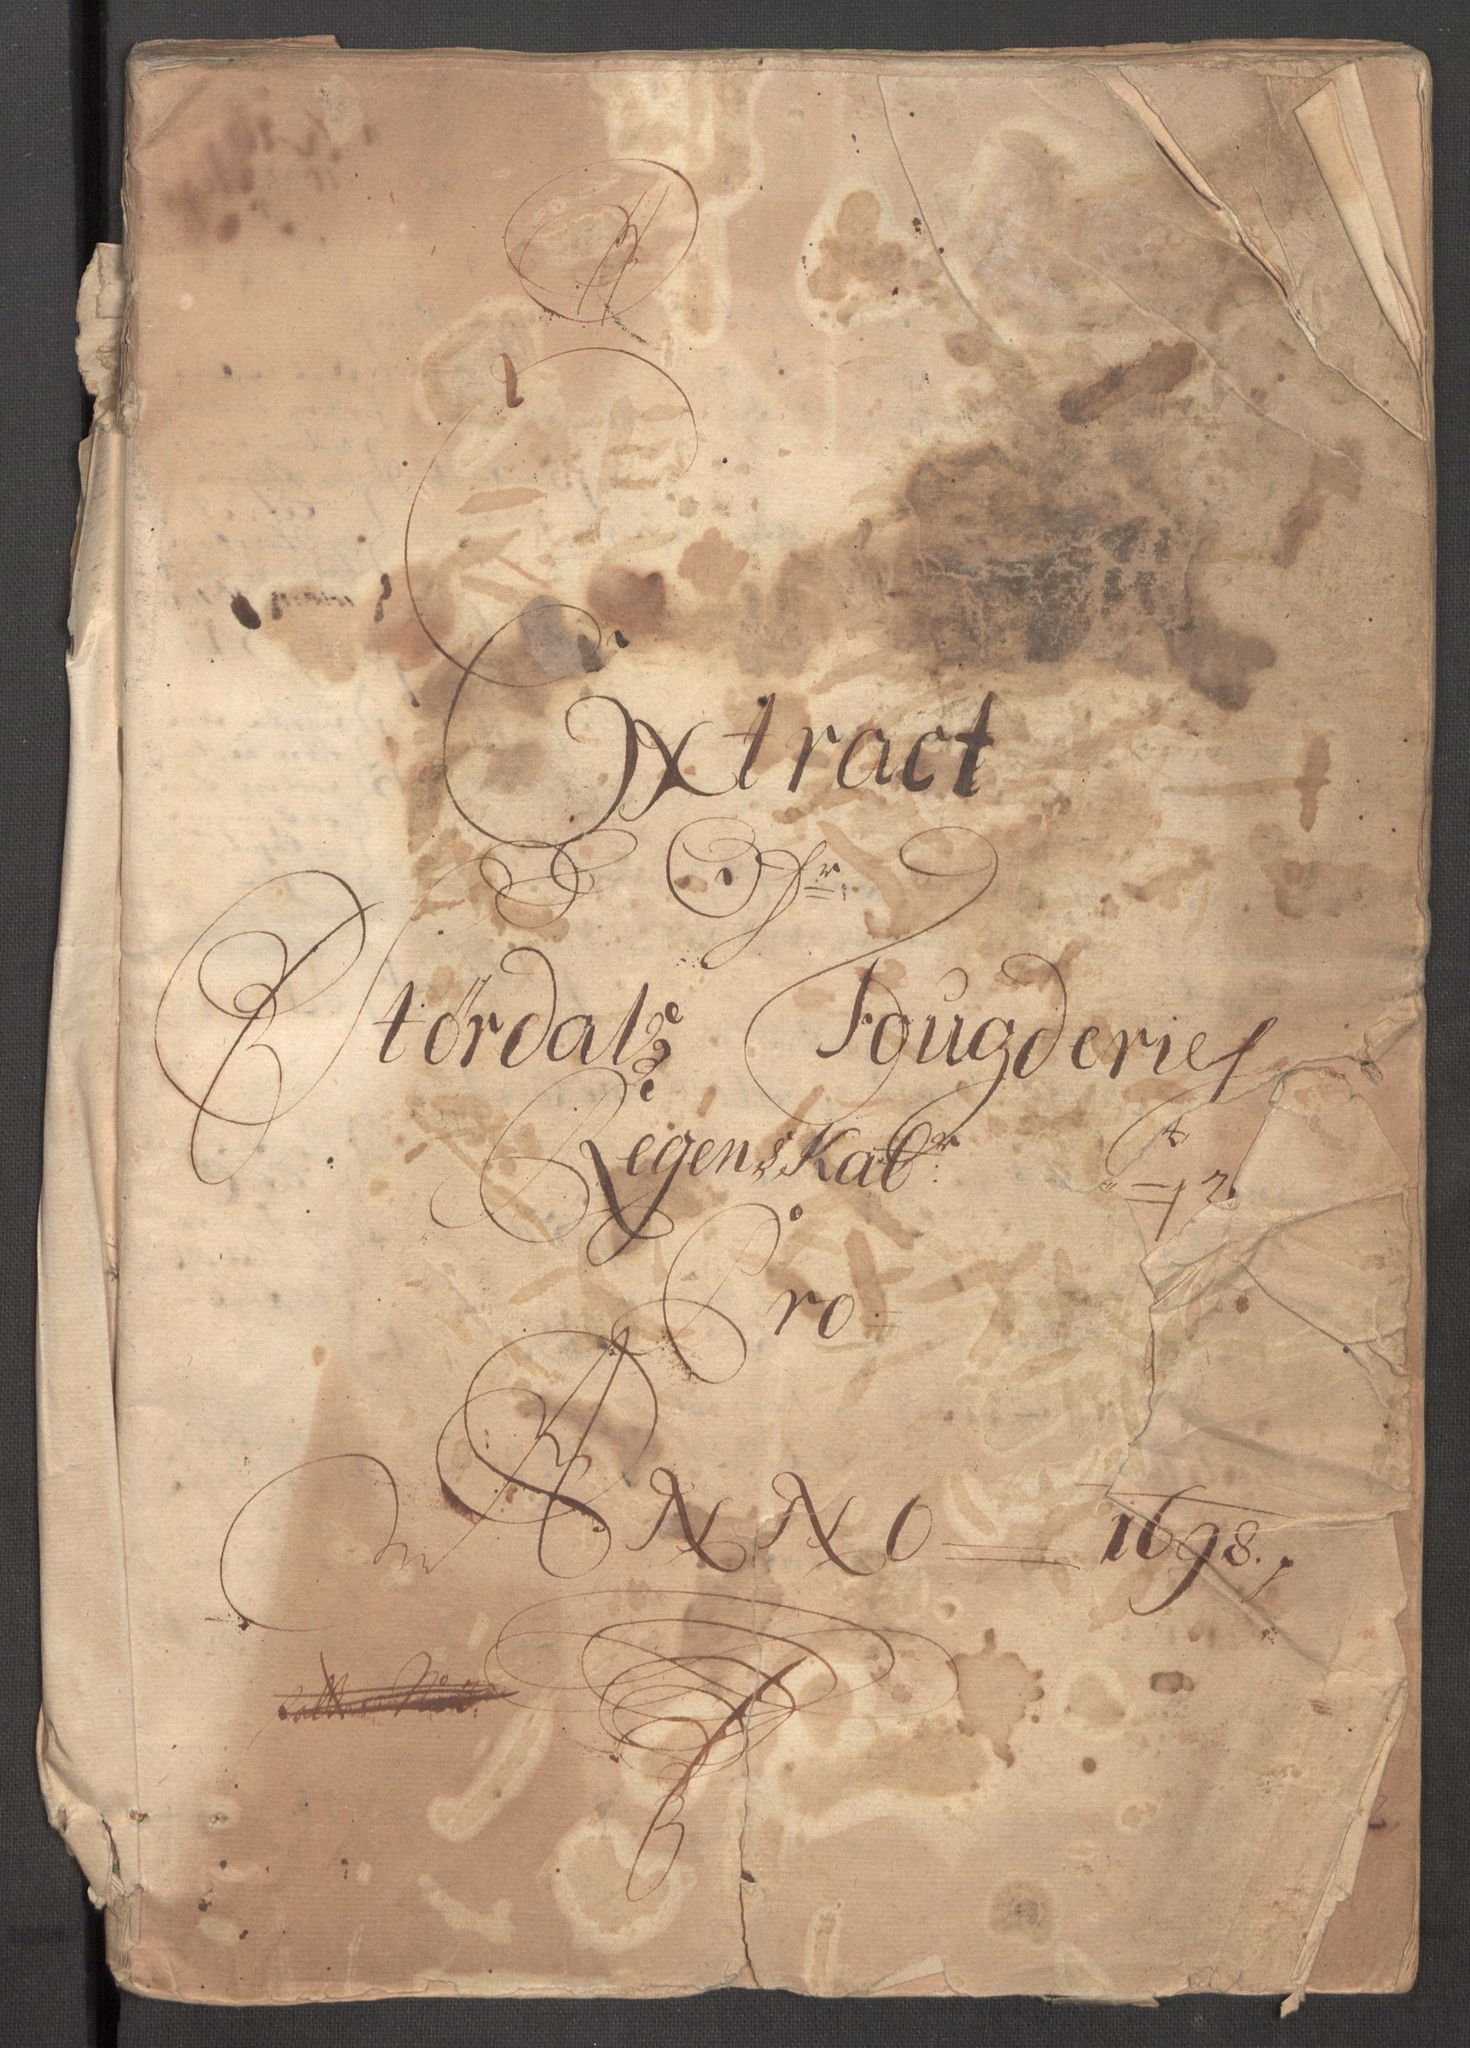 Extract
Ofr
Stördalß Fougderies
RegensKab
Pro
ANNO 1698